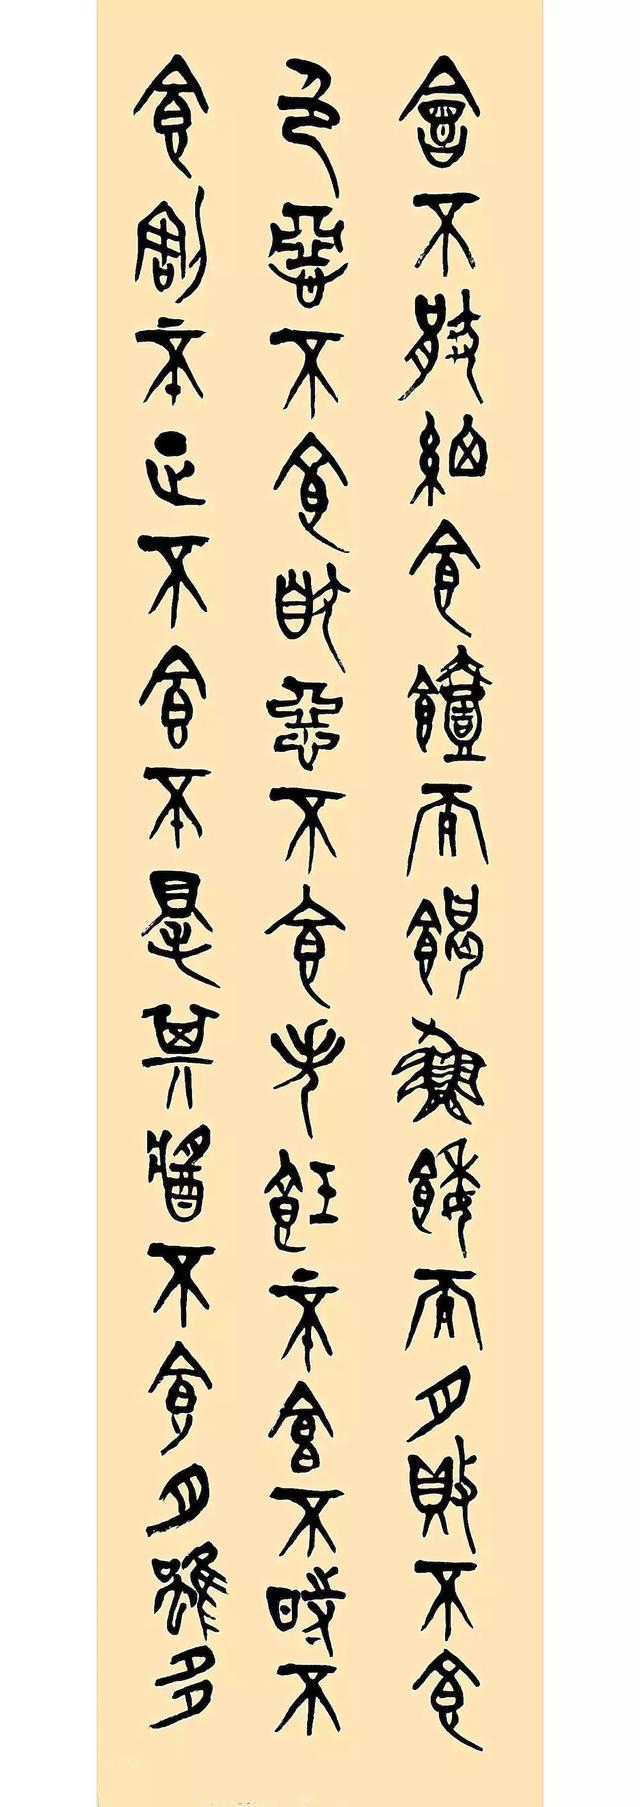 會不厭細食饐而餲魚餒而肉敗不食
色惡不食臭惡不食失飪不食不時不
食割不正不食不得其醬不食肉雖多